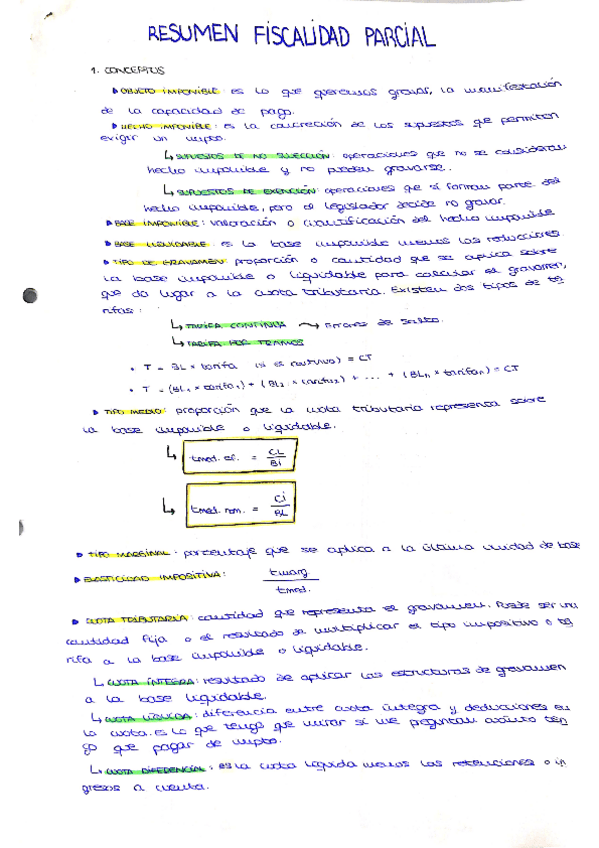 RESUMEN FISCALIDAD PARCIAL
1. CONCEPTOS
OBJETO IMPONIBLE: es lo que queremos gravar, la manifestación
de la capacidad de pago.
HECHO IMPONIBLE: es la concreción de los supuestos que permiten
exigir un impto.
↳ SUPUESTOS DE NO SUJECIÓN: operaciones que no se consideran
hecho imponible y no pueden gravarse.
↳ SUPUESTOS DE EXENCIÓN: operaciones que sí forman parte del
hecho imponible, pero el legislador decide no gravar.
BASE IMPONIBLE: valoración o cuantificación del hecho imponible
BASE LIQUIDABLE: es la base imponible menos las reducciones.
TIPO DE GRAVAMEN: proporción o cantidad que se aplica sobre
la base imponible o liquidable para calcular el gravamen,
que da lugar a la cuota tributaria. Existen dos tipos de ta
rifas:
↳ TARIFA CONTINUA → errores de salto.
↳ TARIFA POR TRAMOS
• T = BL x tarifa (si es continua) = CT
• T = (BL1 x tarifa1) + (BL2 x tarifa2) + ... + (BLn x tarifan) = CT
TIPO MEDIO: proporción que la cuota tributaria representa sobre
la base imponible o liquidable.
↳ tmed. ef. = CL / BI
↳ tmed. nom. = CI / BL
TIPO MARGINAL: porcentaje que se aplica a la última unidad de base
ELASTICIDAD IMPOSITIVA: tmarg. / tmed.
CUOTA TRIBUTARIA: cantidad que representa el gravamen. Puede ser una
cantidad fija o el resultado de multiplicar el tipo impositivo o ta
rifa a la base imponible o liquidable.
↳ CUOTA ÍNTEGRA: resultado de aplicar las estructuras de gravamen
a la base liquidable.
↳ CUOTA LÍQUIDA: diferencia entre cuota íntegra y deducciones en
la cuota. es lo que tengo que mirar si me preguntan cuánto ten
go que pagar de impto.
↳ CUOTA DIFERENCIAL: es la cuota líquida menos las retenciones o in
gresos a cuenta.